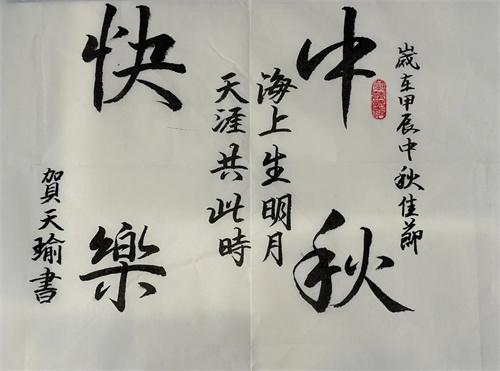 歲在甲辰中秋佳節
中秋
海上生明月
天涯共此時
快樂
賀天瑜書